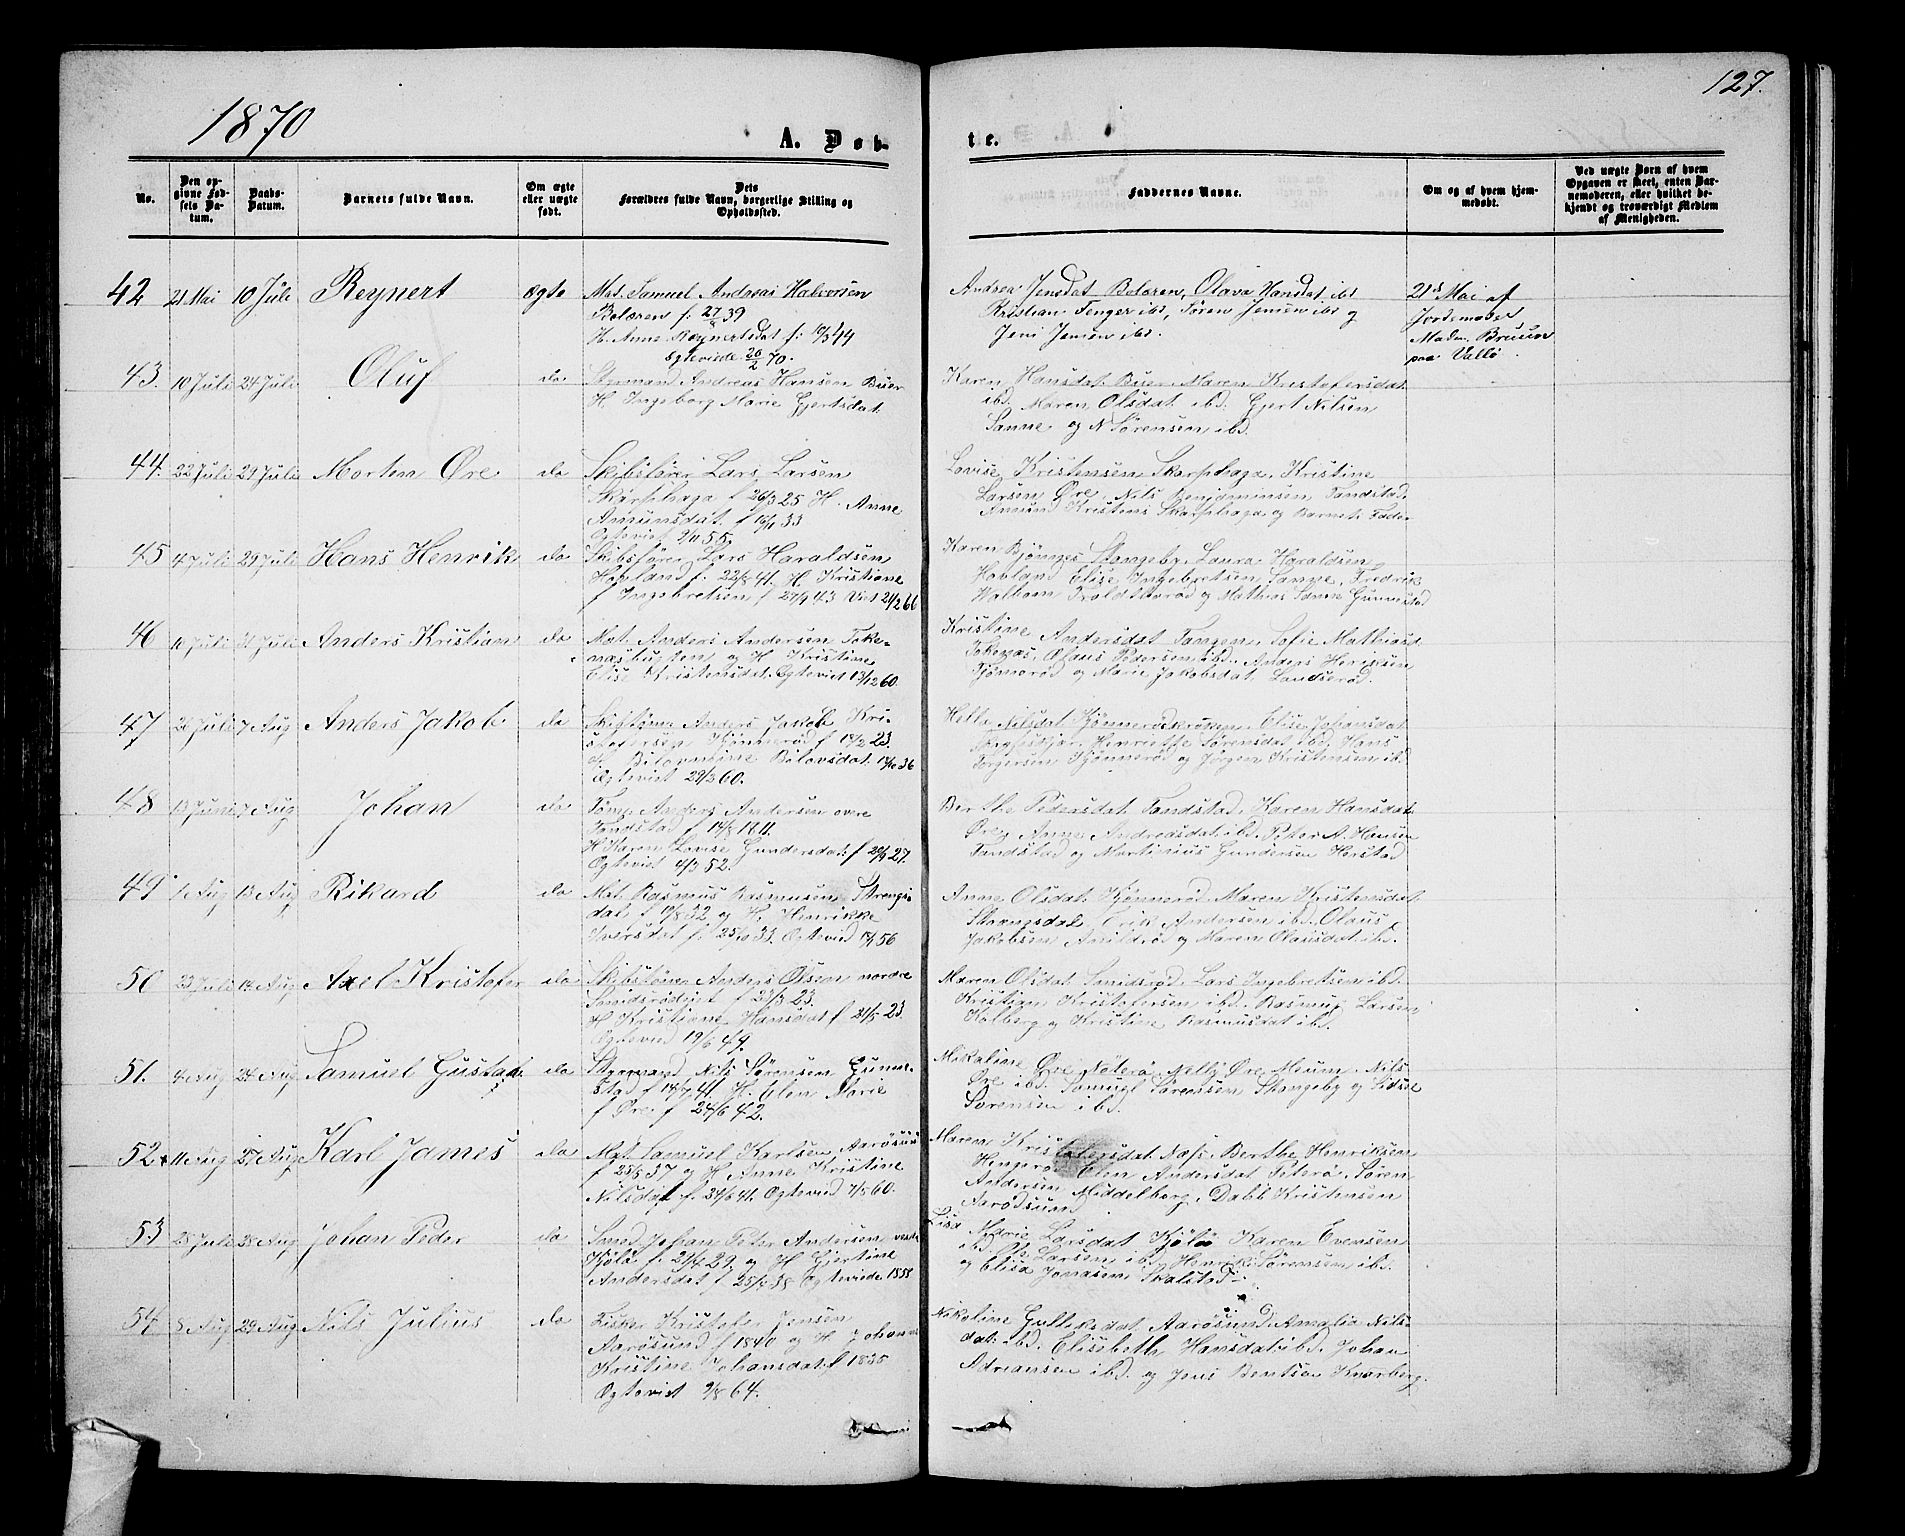 1870
127.
A. Døb-
te.
No.
Den opgivne Fødsels Datum.
Daabs-Datum.
Barnets fulde Navn.
Om ægte eller uægte født.
Dets Forældres fulde Navn, borgerlige Stilling og Opholdssted.
Faddernes Navne.
Om og af hvem hjemmedøbt.
Ved uægte Børn af hvem Opgaven er skeet, enten Barnemoderen, eller hvilket bekjendt og troværdigt Medlem af Menigheden.
42 21 Mai 10 Juli Reynert ægte Mat. Samuel Andreas Halvorsen
Bolæren f: 27/8 39
H. Anne Reynertsdat f: 10/3 44
Egteviede 20/2 70.
Andrea Jensdat Bolæren, Olava Hansdat ibd
Kristian Fenger ibd, Søren Jensen ibd og
Jens Jensen ibd.
21de Mai af
Jordemoder
Madm. Bruun
paa Vallø.
43. 10 Juli 24 Juli Oluf do Styrmand Andreas Hansen Buer
H. Ingeborg Marie Gjertsdat.
Karen Hansdat Buer, Maren Kristofersdat
ibd. Maren Olsdat ibd. Gjert Nilsen
Sanne og N Sørensen ibd.
44. 22 Juli 29 Juli Morten Øre do Skibsfører Lars Larsen
Skarphaga f 26/3 25 H. Anne
Amunsdat. f 16/1 33
Egteviet 2/11 55.
Lovise Kristensen Skarphaga, Kristine
Larsen Øre, Nils Benjaminsen Tandstad,
Amund Kristens Skarphaga og Barnets Fader
45 4 Juli 29 Juli Hans Henrik do Skibsfører Lars Haraldsen
Havland f. 22/8 41. H. Kristiane
f Ingebretsen f 27/9 43 Viet 24/2 66
Karen Bjønnes Stangeby, Laura Haraldsen
Havland Elise Ingebretsen Sanne, Fredrik
46 10 Juli 31 Juli Anders Kristian do Mat. Anders Andersen Toke-
næsbugten, og H. Kristine
Elise Kristensdat. Egteviet 13/12 60.
Kristine Andersdat Tangen, Sofie Mathiasd
Tokenæs, Olaus Pedersen ibd. Anders Henriksen
Tjømerød og Marie Jakobsdat
47 26 Juli 7 Aug Anders Jakob do Skibstømr Anders Jakob Kri-
stofersen Kjønnerød f 18/2 23.
Bolovsdat 17/10 36
Egteviet 29/3 60.
Helle Nilsdat Elise Johansdat
Henriette Sørensdat ibd, Hans
Torgersen Kjønnerød og Jørgen Kristensen ib.
48 13 Juni 7 Aug Johan do Tømr Anders Andersen øvre
Tandstad f 14/8 1811.
H Karen Lovise Gundersdat f 24/9 27.
Egteviet 4/3 52.
Berthe Pedersdat Tandstad, Karen Hansdat
Øre, Anne Andreasdat ibd. Peter A. Hansen
Tandstad og Martinius Gundersen Herstad
49 1 Aug 13 Aug Rikard do Mat Rasmus Rasmussen Strengs-
dal f 19/8 32 og H. Henrikke
Iversdat f. 25/10 33. Egteviet 56
Anne Olsdat Kjønnerød Maren Kristensdat
Strængsdal, Erik Andersen ibd. Olaus
Jakobsen og Maren Olausdat ibd.
50 23 Juli 14 Aug Axel Kristofer do Skibstømr Anders Olsen nordre
Smidsrød f 23/3 23.
H Kristiane Hansdat f 21/5 23
Egteviet 19/6 49.
Maren Olsdat Smidsrød, Lars Ingebretsen ibd.
Kristian Kristofersen ibd. Rasmus Larsen
Kolberg og Kristine Rasmusdat ibd.
51. 4 Aug 24 Aug Samuel Gustav do Styrmand Nils Sørensen Gunne-
stad f 18/7 41. H. Elen Marie
f Øre f 24/6 42.
Mikaline Øre Nøterø, Nelly Øre Meum. Nils
Øre ibd. Samuel Sørensen Stangeby og
Sørensen ibd.
52 11 Aug 27 Aug Karl James do Mat Samuel Karlsen Aarøsund
f 25/5 37 og H. Anne Kristine
Nilsdat f. 24/6 41. Egteviet 7/5 60.
Maren Kristofersdat Næss. Berthe Henriksen
Elen Andersdat Peterø, Søren
Andersen Middelborg, Kristensen
Aarøsund
53 25 Juli 28 Aug Johan Peder do Smed Johan Peter Andersen vestr
Kjølø f. 21/4 29, og H Gjertine
Andersdat f 25/4 38 Egteviede 1858
Lisa Marie Larsdat Kjølø Karen Evensen
ibd. Larsen ibd. Henrik Sørensen ibd.
og Elisa Jonasen Skalstad
54 5 Aug 29 Aug Nils Julius do Fisker Kristofer Jensen
Aarøsund f 1840 og H Johanne
Kristine Johansdat f 1835
Egteviet 9/8 64.
Nikoline Gulleksdat Aarøsund. Amalia Nils-
dat ibd. Elisebeth Hansdat ibd. Johan
Adriansen ibd. og Jens Bentsen Knarberg.